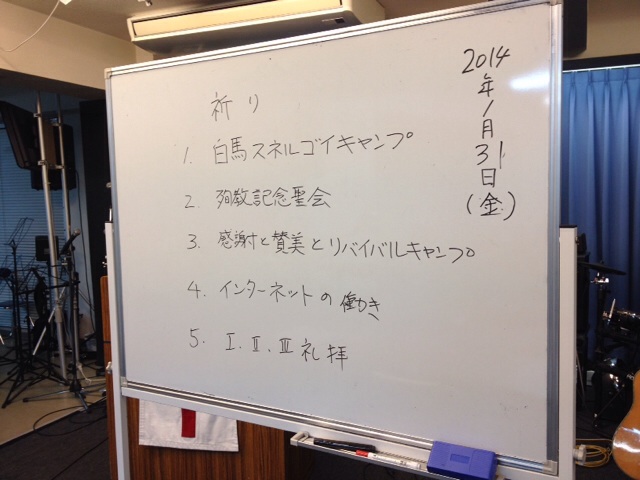 2014年1月31日(金)
祈り
1. 白馬スネルゴイキャンプ
2. 殉教記念聖会
3. 感謝と賛美とリバイバルキャンプ
4. インターネットの働き
5. Ⅰ. Ⅱ. Ⅲ 礼拝